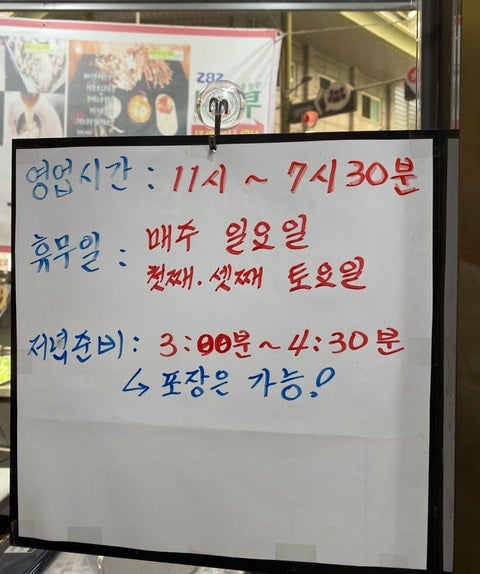 SBS
영업시간 : 11시 ~ 7시 30분
휴무일 : 매주 일요일
첫째. 셋째 토요일
저녁준비 : 3:00분 ~ 4:30분
↳ 포장은 가능!